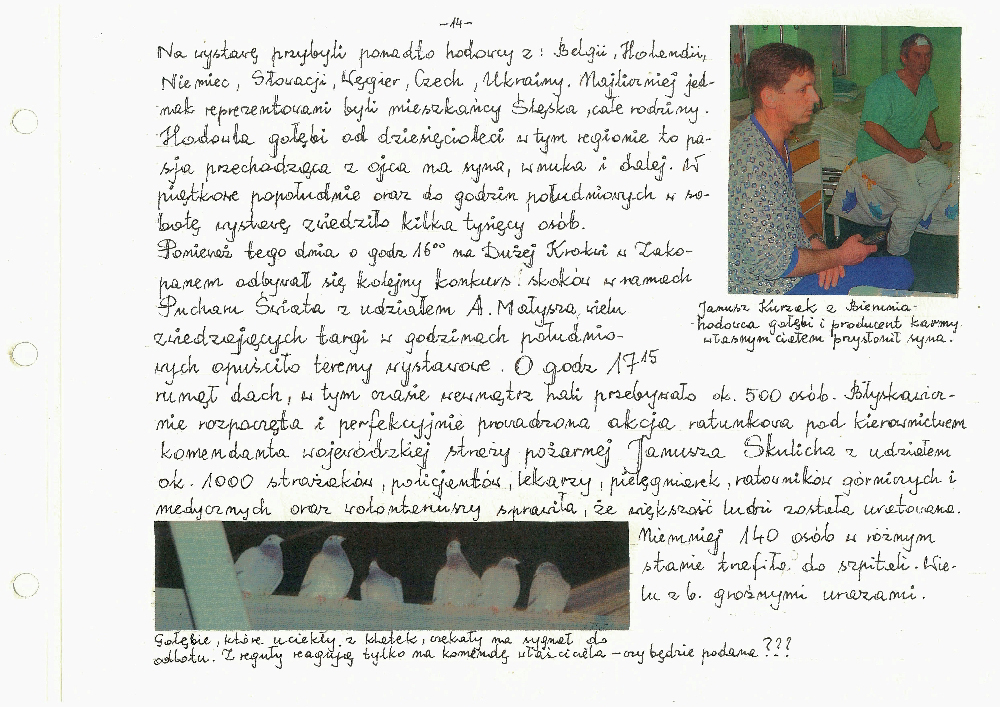 -14-
Na wystawę przybyli ponadto hodowcy z: Belgii, Holandii,
Niemiec, Słowacji, Węgier, Czech, Ukrainy. Najliczniej jed-
nak reprezentowani byli mieszkańcy Śląska, całe rodziny.
Hodowla gołębi od dziesięcioleci w tym regionie to pa-
sja przechodząca z ojca na syna, wnuka i dalej. W
piątkowe popołudnie oraz do godzin południowych w so-
botę wystawę zwiedziło kilka tysięcy osób.
Ponieważ tego dnia o godz 16⁰⁰ na Dużej Krokwi w Zako-
panem odbywał się kolejny konkurs skoków w ramach
Pucharu Świata z udziałem A. Małysza, wielu
zwiedzających targi w godzinach południo-
wych opuściło tereny wystawowe. O godz 17¹⁵
runął dach, w tym czasie wewnątrz hali przebywało ok. 500 osób. Błyskawicz-
nie rozpoczęta i perfekcyjnie prowadzona akcja ratunkowa pod kierownictwem
komendanta wojewódzkiej straży pożarnej Janusza Skulicha z udziałem
ok. 1000 strażaków, policjentów, lekarzy, pielęgniarek, ratowników górniczych i
medycznych oraz wolontariuszy sprawiła, że większość ludzi została uratowana.
Niemniej 140 osób w różnym
stanie trafiło do szpitali. Wie-
lu z b. groźnymi urazami.
Janusz Kurzak z Bierunia-
hodowca gołębi i producent karmy
własnym ciałem przysłonił syna.
Gołębie, które uciekły z klatek, czekały na sygnał do
odlotu. Z reguły reagują tylko na komendę właściciela - czy będzie podana ???